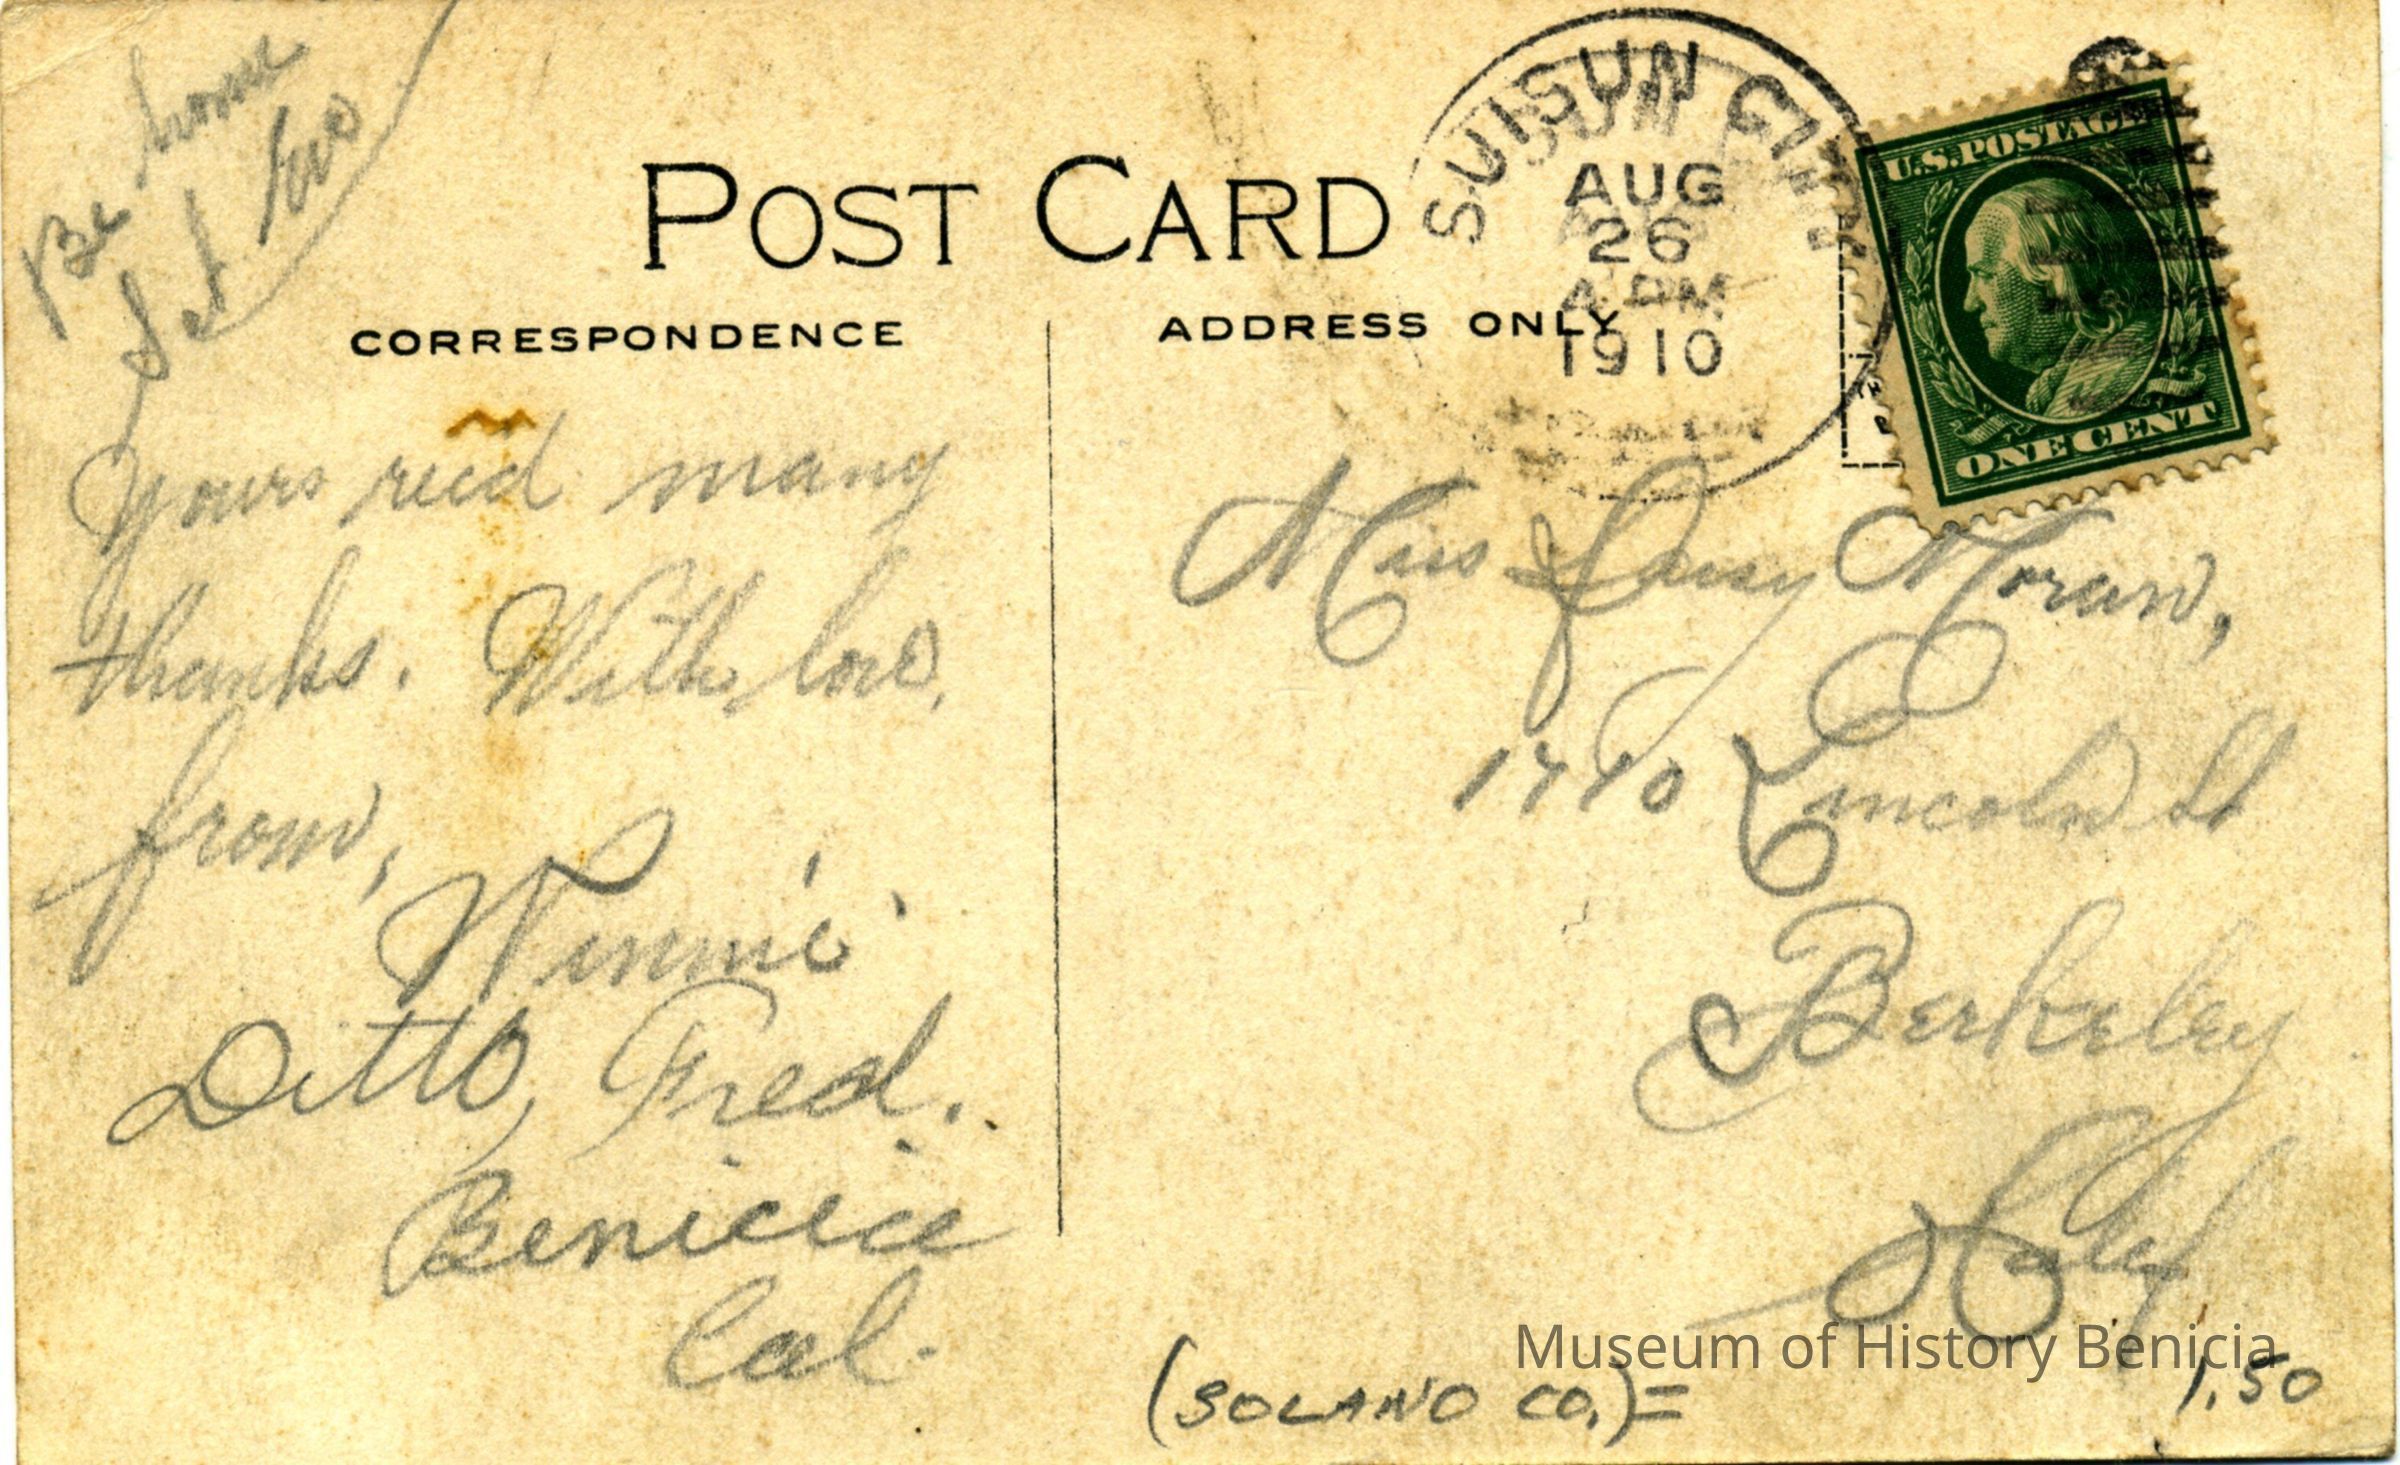 Be home
Sat Eve
POST CARD
CORRESPONDENCE
ADDRESS ONLY
SUISUN CITY
AUG
26
1910
U.S.POSTAGE
ONE CENT
Yours recd many
thanks. With love,
from,
Winnie
Ditto, Fred.
Benicia
Cal.
Miss Daisy Moran,
Lincoln St
Berkeley
Calif
(SOLANO CO.)=
1.50
Museum of History Benicia